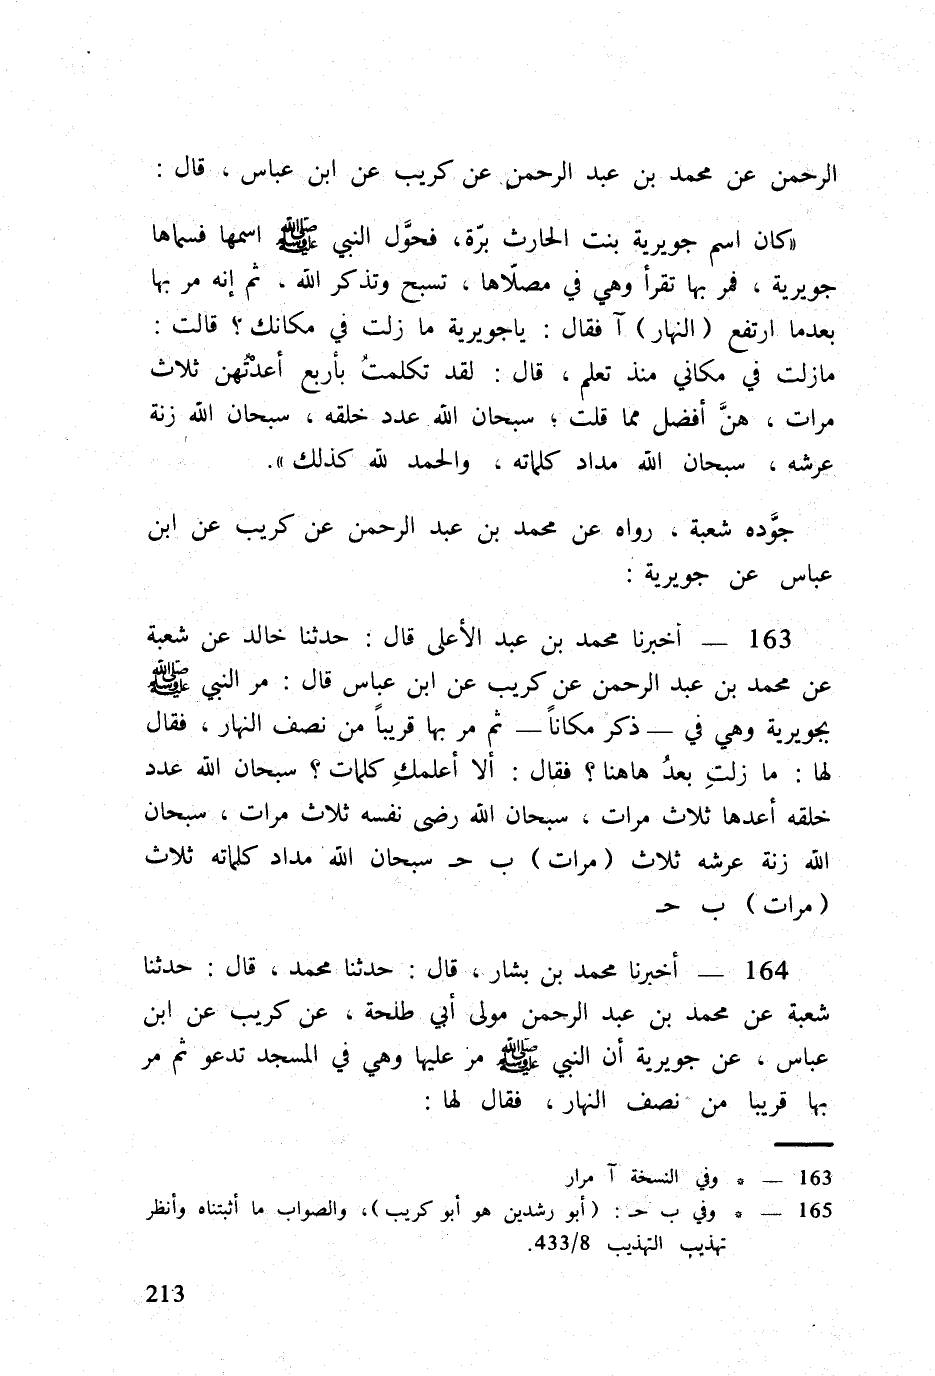 الرحمن عن محمد بن عبد الرحمن عن كريب عن ابن عباس ، قال :
«كان اسم جويرية بنت الحارث برّة، فحوَّل النبي ﷺ اسمها فسماها
جويرية ، فمر بها تقرأ وهي في مصلّاها ، تسبح وتذكر الله ، ثم إنه مر بها
بعدما ارتفع (النهار) آ فقال : ياجويرية ما زلت في مكانك ؟ قالت :
مازلت في مكاني منذ تعلم ، قال : لقد تكلمتُ بأربع أعدْتُهن ثلاث
مرات ، هنَّ أفضل مما قلت ؛ سبحان الله عدد خلقه ، سبحان الله زنة
عرشه ، سبحان الله مداد كلماته ، والحمد لله كذلك ».
جوَّده شعبة ، رواه عن محمد بن عبد الرحمن عن كريب عن ابن
عباس عن جويرية :
163 — أخبرنا محمد بن عبد الأعلى قال : حدثنا خالد عن شعبة
عن محمد بن عبد الرحمن عن كريب عن ابن عباس قال : مر النبي ﷺ
بجويرية وهي في — ذكر مكاناً — ثم مر بها قريباً من نصف النهار ، فقال
لها : ما زلتِ بعدُ هاهنا ؟ فقال : ألا أعلمكِ كلمات ؟ سبحان الله عدد
خلقه أعدها ثلاث مرات ، سبحان الله رضى نفسه ثلاث مرات ، سبحان
الله زنة عرشه ثلاث (مرات) ب حـ سبحان الله مداد كلماته ثلاث
(مرات) ب حـ
164 — أخبرنا محمد بن بشار ، قال : حدثنا محمد ، قال : حدثنا
شعبة عن محمد بن عبد الرحمن مولى أبي طلحة ، عن كريب عن ابن
عباس ، عن جويرية أن النبي ﷺ مر عليها وهي في المسجد تدعو ثم مر
بها قريبا من نصف النهار ، فقال لها :
163 — * وفي النسخة آ مرار
165 — * وفي ب حـ : (أبو رشدين هو أبو كريب)، والصواب ما أثبتناه وأنظر
تهذيب التهذيب 433/8.
213